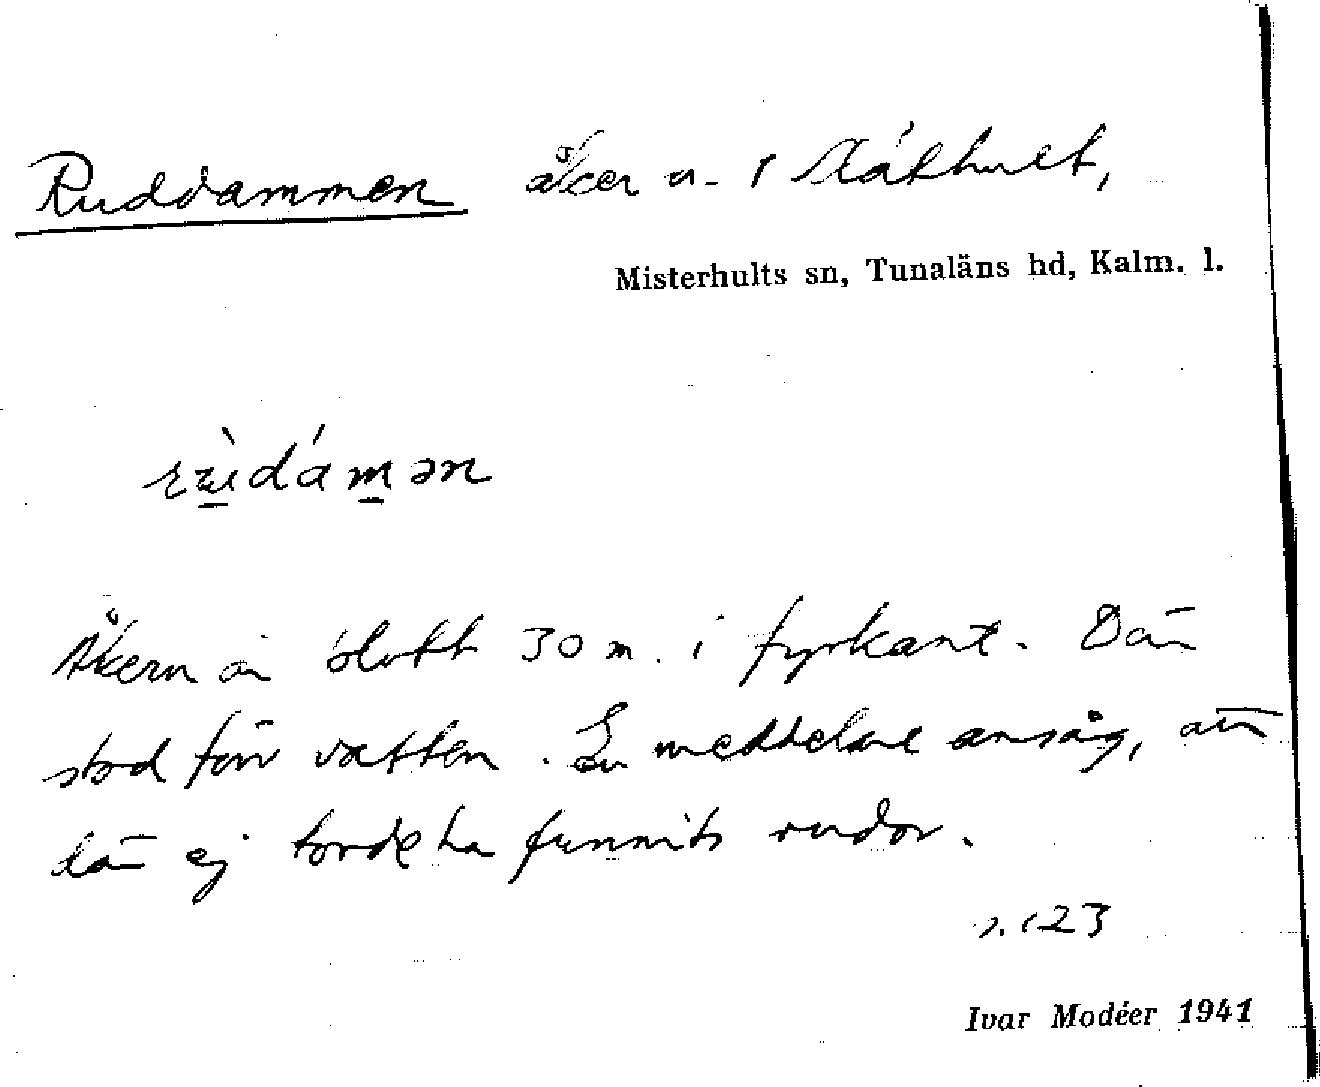 Ruddammen åker u. 1 Släthult,
Misterhults sn, Tunaläns hd, Kalm. l.
rùdámən
Åkern är blott 30 m. i fyrkant. Där
stod förr vatten. En meddelare ansåg, att
där ej torde ha funnits rudor.
s. 123
Ivar Modéer 1941